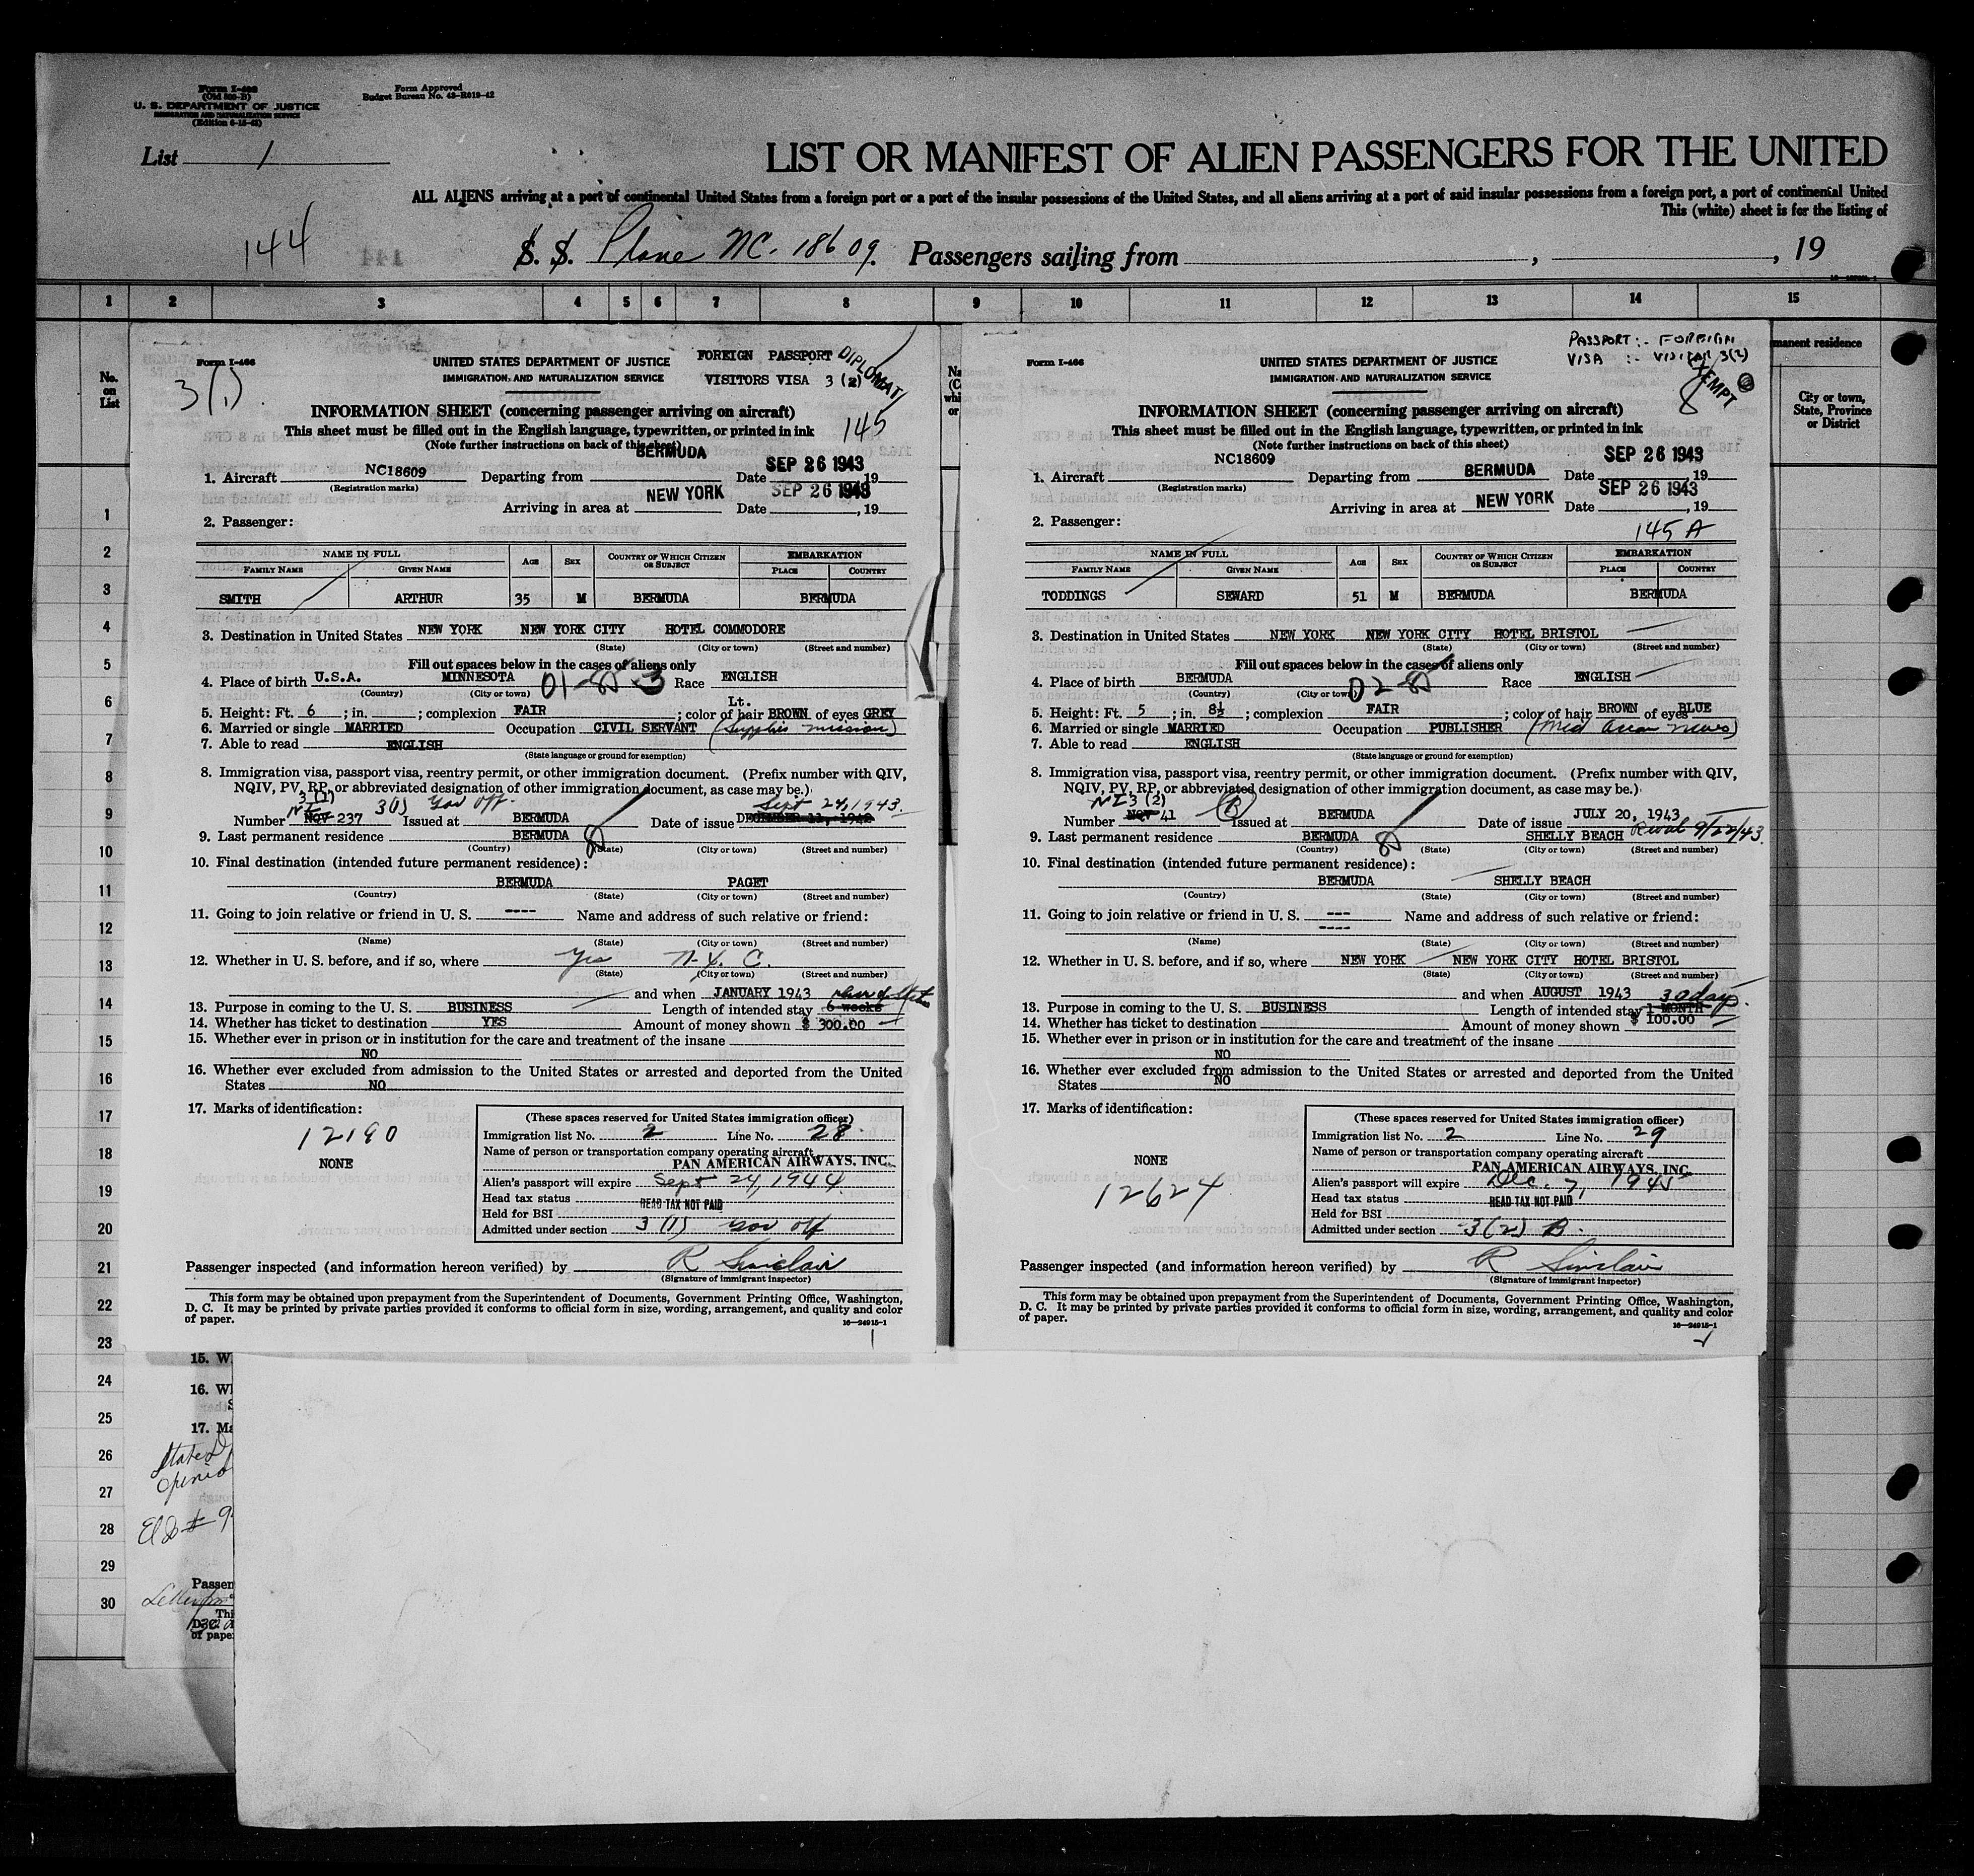 Form I-466
(Old 500-B)
U. S. DEPARTMENT OF JUSTICE
IMMIGRATION AND NATURALIZATION SERVICE
(Edition 6-15-42)
Form Approved
Budget Bureau No. 43-R019-42
List 1
LIST OR MANIFEST OF ALIEN PASSENGERS FOR THE UNITED
ALL ALIENS arriving at a port of continental United States from a foreign port or a port of the insular possessions of the United States, and all aliens arriving at a port of said insular possessions from a foreign port, a port of continental United
This (white) sheet is for the listing of
144
S. S. Plane NC-18609. Passengers sailing from , , 19
1 2 3 4 5 6 7 8 9 10 11 12 13 14 15
No. on List
1
2
3
4
5
6
7
8
9
10
11
12
13
14
15
16
17
18
19
20
21
22
23
24
25
26
27
28
29
30
Form I-466
3(1).
UNITED STATES DEPARTMENT OF JUSTICE
IMMIGRATION AND NATURALIZATION SERVICE
FOREIGN PASSPORT DIPLOMAT
VISITORS VISA 3 (2)
INFORMATION SHEET (concerning passenger arriving on aircraft)
145
This sheet must be filled out in the English language, typewritten, or printed in ink
(Note further instructions on back of this sheet)
1. Aircraft NC18609 Departing from BERMUDA Date SEP 26 1943, 19
(Registration marks)
Arriving in area at NEW YORK Date SEP 26 1943, 19
2. Passenger:
NAME IN FULL
FAMILY NAME GIVEN NAME AGE SEX COUNTRY OF WHICH CITIZEN OR SUBJECT EMBARKATION
PLACE COUNTRY
SMITH ARTHUR 35 M BERMUDA BERMUDA
3. Destination in United States NEW YORK NEW YORK CITY HOTEL COMMODORE
(State) (City or town) (Street and number)
Fill out spaces below in the cases of aliens only
4. Place of birth U.S.A. MINNESOTA Race ENGLISH
(Country) (City or town)
5. Height: Ft. 6 ; in. ; complexion FAIR ; color of hair Lt. BROWN of eyes GREY
6. Married or single MARRIED Occupation CIVIL SERVANT (Supplies mission)
7. Able to read ENGLISH
(State language or ground for exemption)
8. Immigration visa, passport visa, reentry permit, or other immigration document. (Prefix number with QIV,
NQIV, PV, RP, or abbreviated designation of other immigration document, as case may be.)
3 (1) 3(1) Gov Off. Sept 24, 1943.
Number NI NOV 237 Issued at BERMUDA Date of issue DECEMBER 11, 1942
9. Last permanent residence BERMUDA
(Country) (State) (City or town) (Street and number)
10. Final destination (intended future permanent residence):
BERMUDA PAGET
(Country) (State) (City or town) (Street and number)
11. Going to join relative or friend in U. S. ---- Name and address of such relative or friend:
(Name) (State) (City or town) (Street and number)
12. Whether in U. S. before, and if so, where Yes N.Y.C.
(State) (City or town) (Street and number)
and when JANUARY 1943
13. Purpose in coming to the U. S. BUSINESS Length of intended stay 6 weeks
14. Whether has ticket to destination YES Amount of money shown $ 300.00
15. Whether ever in prison or in institution for the care and treatment of the insane
NO
16. Whether ever excluded from admission to the United States or arrested and deported from the United
States NO
17. Marks of identification:
12190
NONE
(These spaces reserved for United States immigration officer)
Immigration list No. 2 Line No. 28
Name of person or transportation company operating aircraft
PAN AMERICAN AIRWAYS, INC.
Alien's passport will expire Sept 24, 1944
Head tax status HEAD TAX NOT PAID
Held for BSI
Admitted under section 3 (1) Gov Off
Passenger inspected (and information hereon verified) by R Sinclair
(Signature of immigrant inspector)
This form may be obtained upon prepayment from the Superintendent of Documents, Government Printing Office, Washington,
D. C. It may be printed by private parties provided it conforms to official form in size, wording, arrangement, and quality and color
of paper.
16—24915-1
Form I-466
UNITED STATES DEPARTMENT OF JUSTICE
IMMIGRATION AND NATURALIZATION SERVICE
PASSPORT:- FOREIGN
VISA :- VISITOR 3(2)
EXEMPT
INFORMATION SHEET (concerning passenger arriving on aircraft)
This sheet must be filled out in the English language, typewritten, or printed in ink
(Note further instructions on back of this sheet)
1. Aircraft NC18609 Departing from BERMUDA Date SEP 26 1943, 19
(Registration marks)
Arriving in area at NEW YORK Date SEP 26 1943, 19
2. Passenger:
145 A
NAME IN FULL
FAMILY NAME GIVEN NAME AGE SEX COUNTRY OF WHICH CITIZEN OR SUBJECT EMBARKATION
PLACE COUNTRY
TODDINGS SEWARD 51 M BERMUDA BERMUDA
3. Destination in United States NEW YORK NEW YORK CITY HOTEL BRISTOL
(State) (City or town) (Street and number)
Fill out spaces below in the cases of aliens only
4. Place of birth BERMUDA Race ENGLISH
(Country) (City or town)
5. Height: Ft. 5 ; in. 8½ ; complexion FAIR ; color of hair BROWN of eyes BLUE
6. Married or single MARRIED Occupation PUBLISHER (Mid Ocean News)
7. Able to read ENGLISH
(State language or ground for exemption)
8. Immigration visa, passport visa, reentry permit, or other immigration document. (Prefix number with QIV,
NQIV, PV, RP, or abbreviated designation of other immigration document, as case may be.)
NI 3 (2) B
Number NOV 41 Issued at BERMUDA Date of issue JULY 20, 1943
9. Last permanent residence BERMUDA SHELLY BEACH 9/22/43
(Country) (State) (City or town) (Street and number)
10. Final destination (intended future permanent residence):
BERMUDA SHELLY BEACH
(Country) (State) (City or town) (Street and number)
11. Going to join relative or friend in U. S. --- Name and address of such relative or friend:
----
(Name) (State) (City or town) (Street and number)
12. Whether in U. S. before, and if so, where NEW YORK NEW YORK CITY HOTEL BRISTOL
(State) (City or town) (Street and number)
and when AUGUST 1943 30 days.
13. Purpose in coming to the U. S. BUSINESS Length of intended stay 1 MONTH
14. Whether has ticket to destination Amount of money shown $ 100.00
15. Whether ever in prison or in institution for the care and treatment of the insane
NO
16. Whether ever excluded from admission to the United States or arrested and deported from the United
States NO
17. Marks of identification:
NONE
12624
(These spaces reserved for United States immigration officer)
Immigration list No. 2 Line No. 29
Name of person or transportation company operating aircraft
PAN AMERICAN AIRWAYS, INC.
Alien's passport will expire Dec. 7, 1945
Head tax status HEAD TAX NOT PAID
Held for BSI
Admitted under section 3(2) B.
Passenger inspected (and information hereon verified) by R Sinclair
(Signature of immigrant inspector)
This form may be obtained upon prepayment from the Superintendent of Documents, Government Printing Office, Washington,
D. C. It may be printed by private parties provided it conforms to official form in size, wording, arrangement, and quality and color
of paper.
16—24915-1
manent residence
City or town,
State, Province
or District
15. W
16. W
17. Ma
Passen
Thi
D. C.
of pape